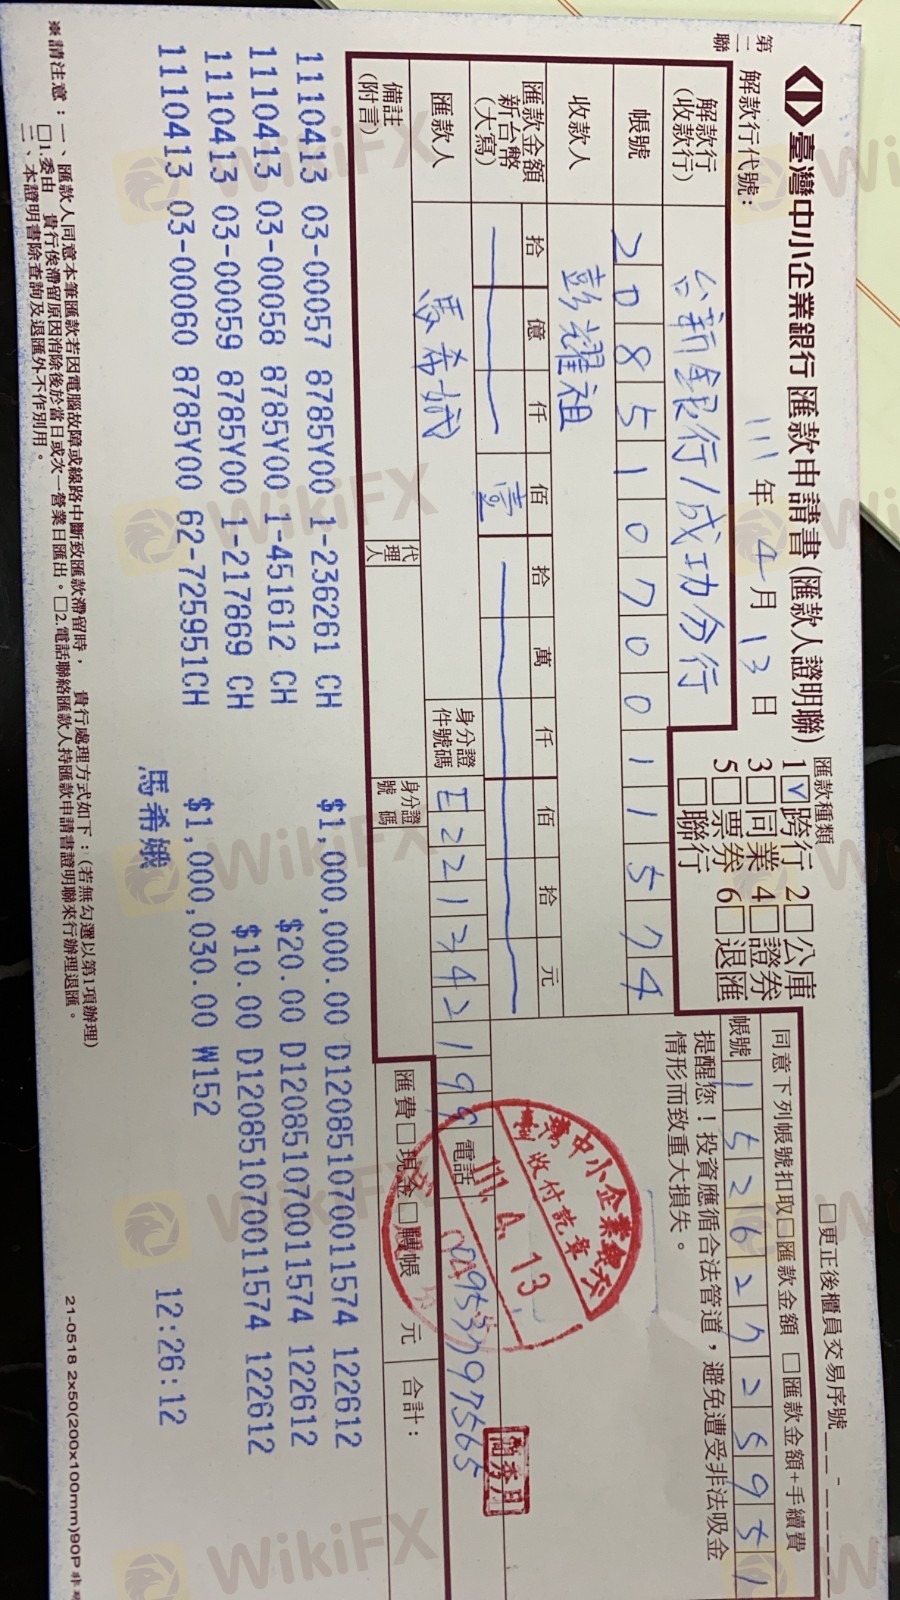 第二聯
臺灣中小企業銀行 匯款申請書(匯款人證明聯)
匯款種類
1☑跨行 2☐公庫
3☐同業 4☐證券
5☐票券 6☐退匯
☐聯行
☐更正後櫃員交易序號
解款行代號:
111年 4月 13日
同意下列帳號扣取☐匯款金額 ☐匯款金額+手續費
帳號
提醒您!投資應循合法管道,避免遭受非法吸金
情形而致重大損失。
解款行
(收款行)
台新銀行/成功分行
帳號
20851070011574
收款人
彭耀祖
匯款金額
新台幣
(大寫)
拾 億 仟 佰 拾 萬 仟 佰 拾 元
壹
匯款人
馬希娥
身分證
件號碼
E221342199
電話
0953797565
代理人
身分證
號碼
備註
(附言)
匯費☐現金☐轉帳 元
合計:
臺灣中小企業銀行
收付訖章
111. 4. 13
1110413 03-00057 8785Y00 1-236261 CH $1,000,000.00 D120851070011574 122612
1110413 03-00058 8785Y00 1-451612 CH $20.00 D120851070011574 122612
1110413 03-00059 8785Y00 1-217869 CH $10.00 D120851070011574 122612
1110413 03-00060 8785Y00 62-725951CH $1,000,030.00 W152
馬希娥 12:26:12
※請注意:一、匯款人同意本筆匯款若因電腦故障或線路中斷致匯款滯留時, 貴行處理方式如下:(若無勾選以第1項辦理)
☐1.委由 貴行俟滯留原因消除後於當日或次一營業日匯出。☐2.電話聯絡匯款人持匯款申請書證明聯來行辦理退匯。
二、本證明書除查詢及退匯外不作別用。
21-0518 2x50(200x100mm)90P
WikiFX
WikiFX
WikiFX
WikiFX
WikiFX
WikiFX